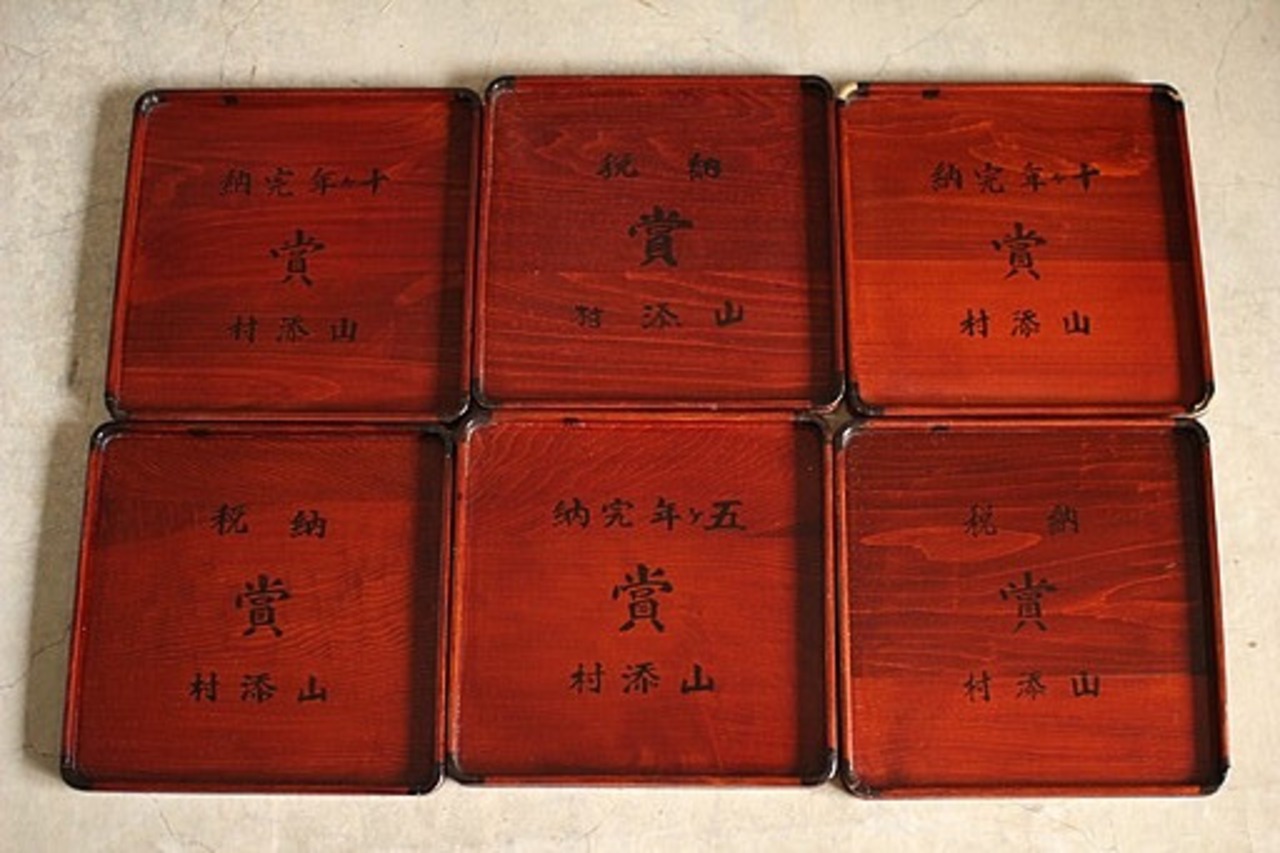 十ヶ年完納
賞
山添村
納税
賞
山添村
十ヶ年完納
賞
山添村
納税
賞
山添村
五ヶ年完納
賞
山添村
納税
賞
山添村